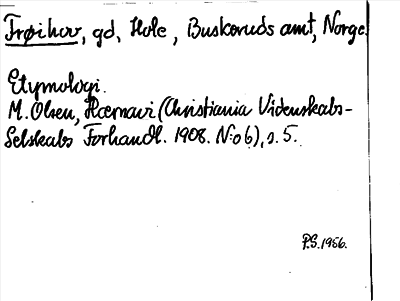 Frøihov, gd, Hole, Buskeruds amt, Norge.
Etymologi.
M. Olsen, Hærnavi (Christiania Videnskabs-
Selskabs Forhandl. 1908. No 6), s. 5.
P.S. 1956.